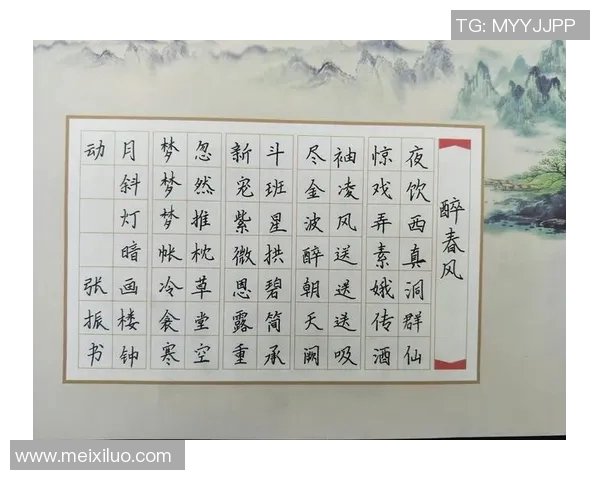 TG: MYYJJPP
醉春风
夜饮西真洞群仙
惊戏弄素娥传酒
袖凌风送送送吸
尽金波醉朝天阙
斗班星拱碧简承
新宠紫微恩露重
忽然推枕草堂空
梦梦梦帐冷衾寒
月斜灯暗画楼钟
动 张振书
www.meixiluo.com